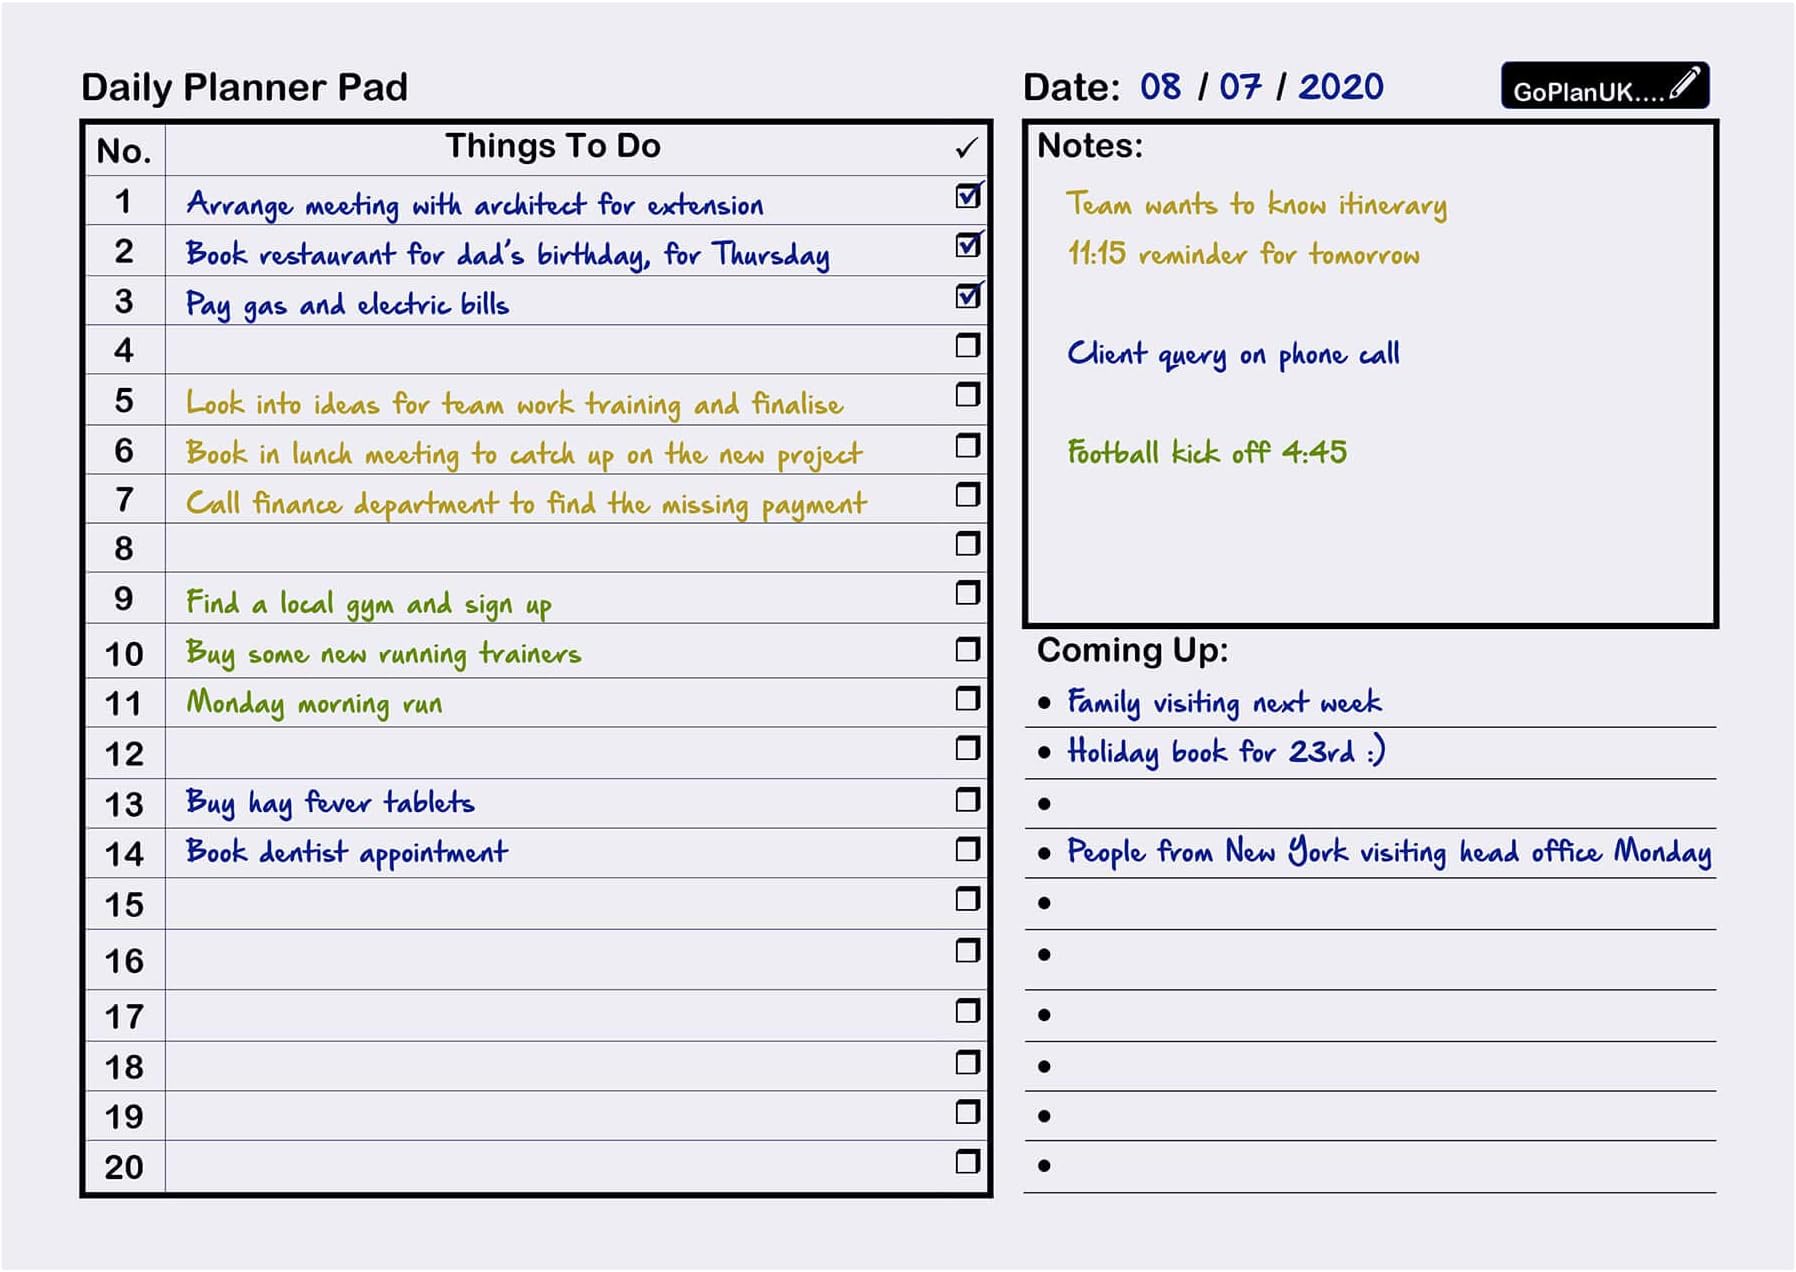 Daily Planner Pad
No. Things To Do ✓
1 Arrange meeting with architect for extension
2 Book restaurant for dad's birthday, for Thursday
3 Pay gas and electric bills
4
5 Look into ideas for team work training and finalise
6 Book in lunch meeting to catch up on the new project
7 Call finance department to find the missing payment
8
9 Find a local gym and sign up
10 Buy some new running trainers
11 Monday morning run
12
13 Buy hay fever tablets
14 Book dentist appointment
15
16
17
18
19
20
Date: 08 / 07 / 2020
GoPlanUK....
Notes:
Team wants to know itinerary
11:15 reminder for tomorrow
Client query on phone call
Football kick off 4:45
Coming Up:
• Family visiting next week
• Holiday book for 23rd :)
•
• People from New York visiting head office Monday
•
•
•
•
•
•